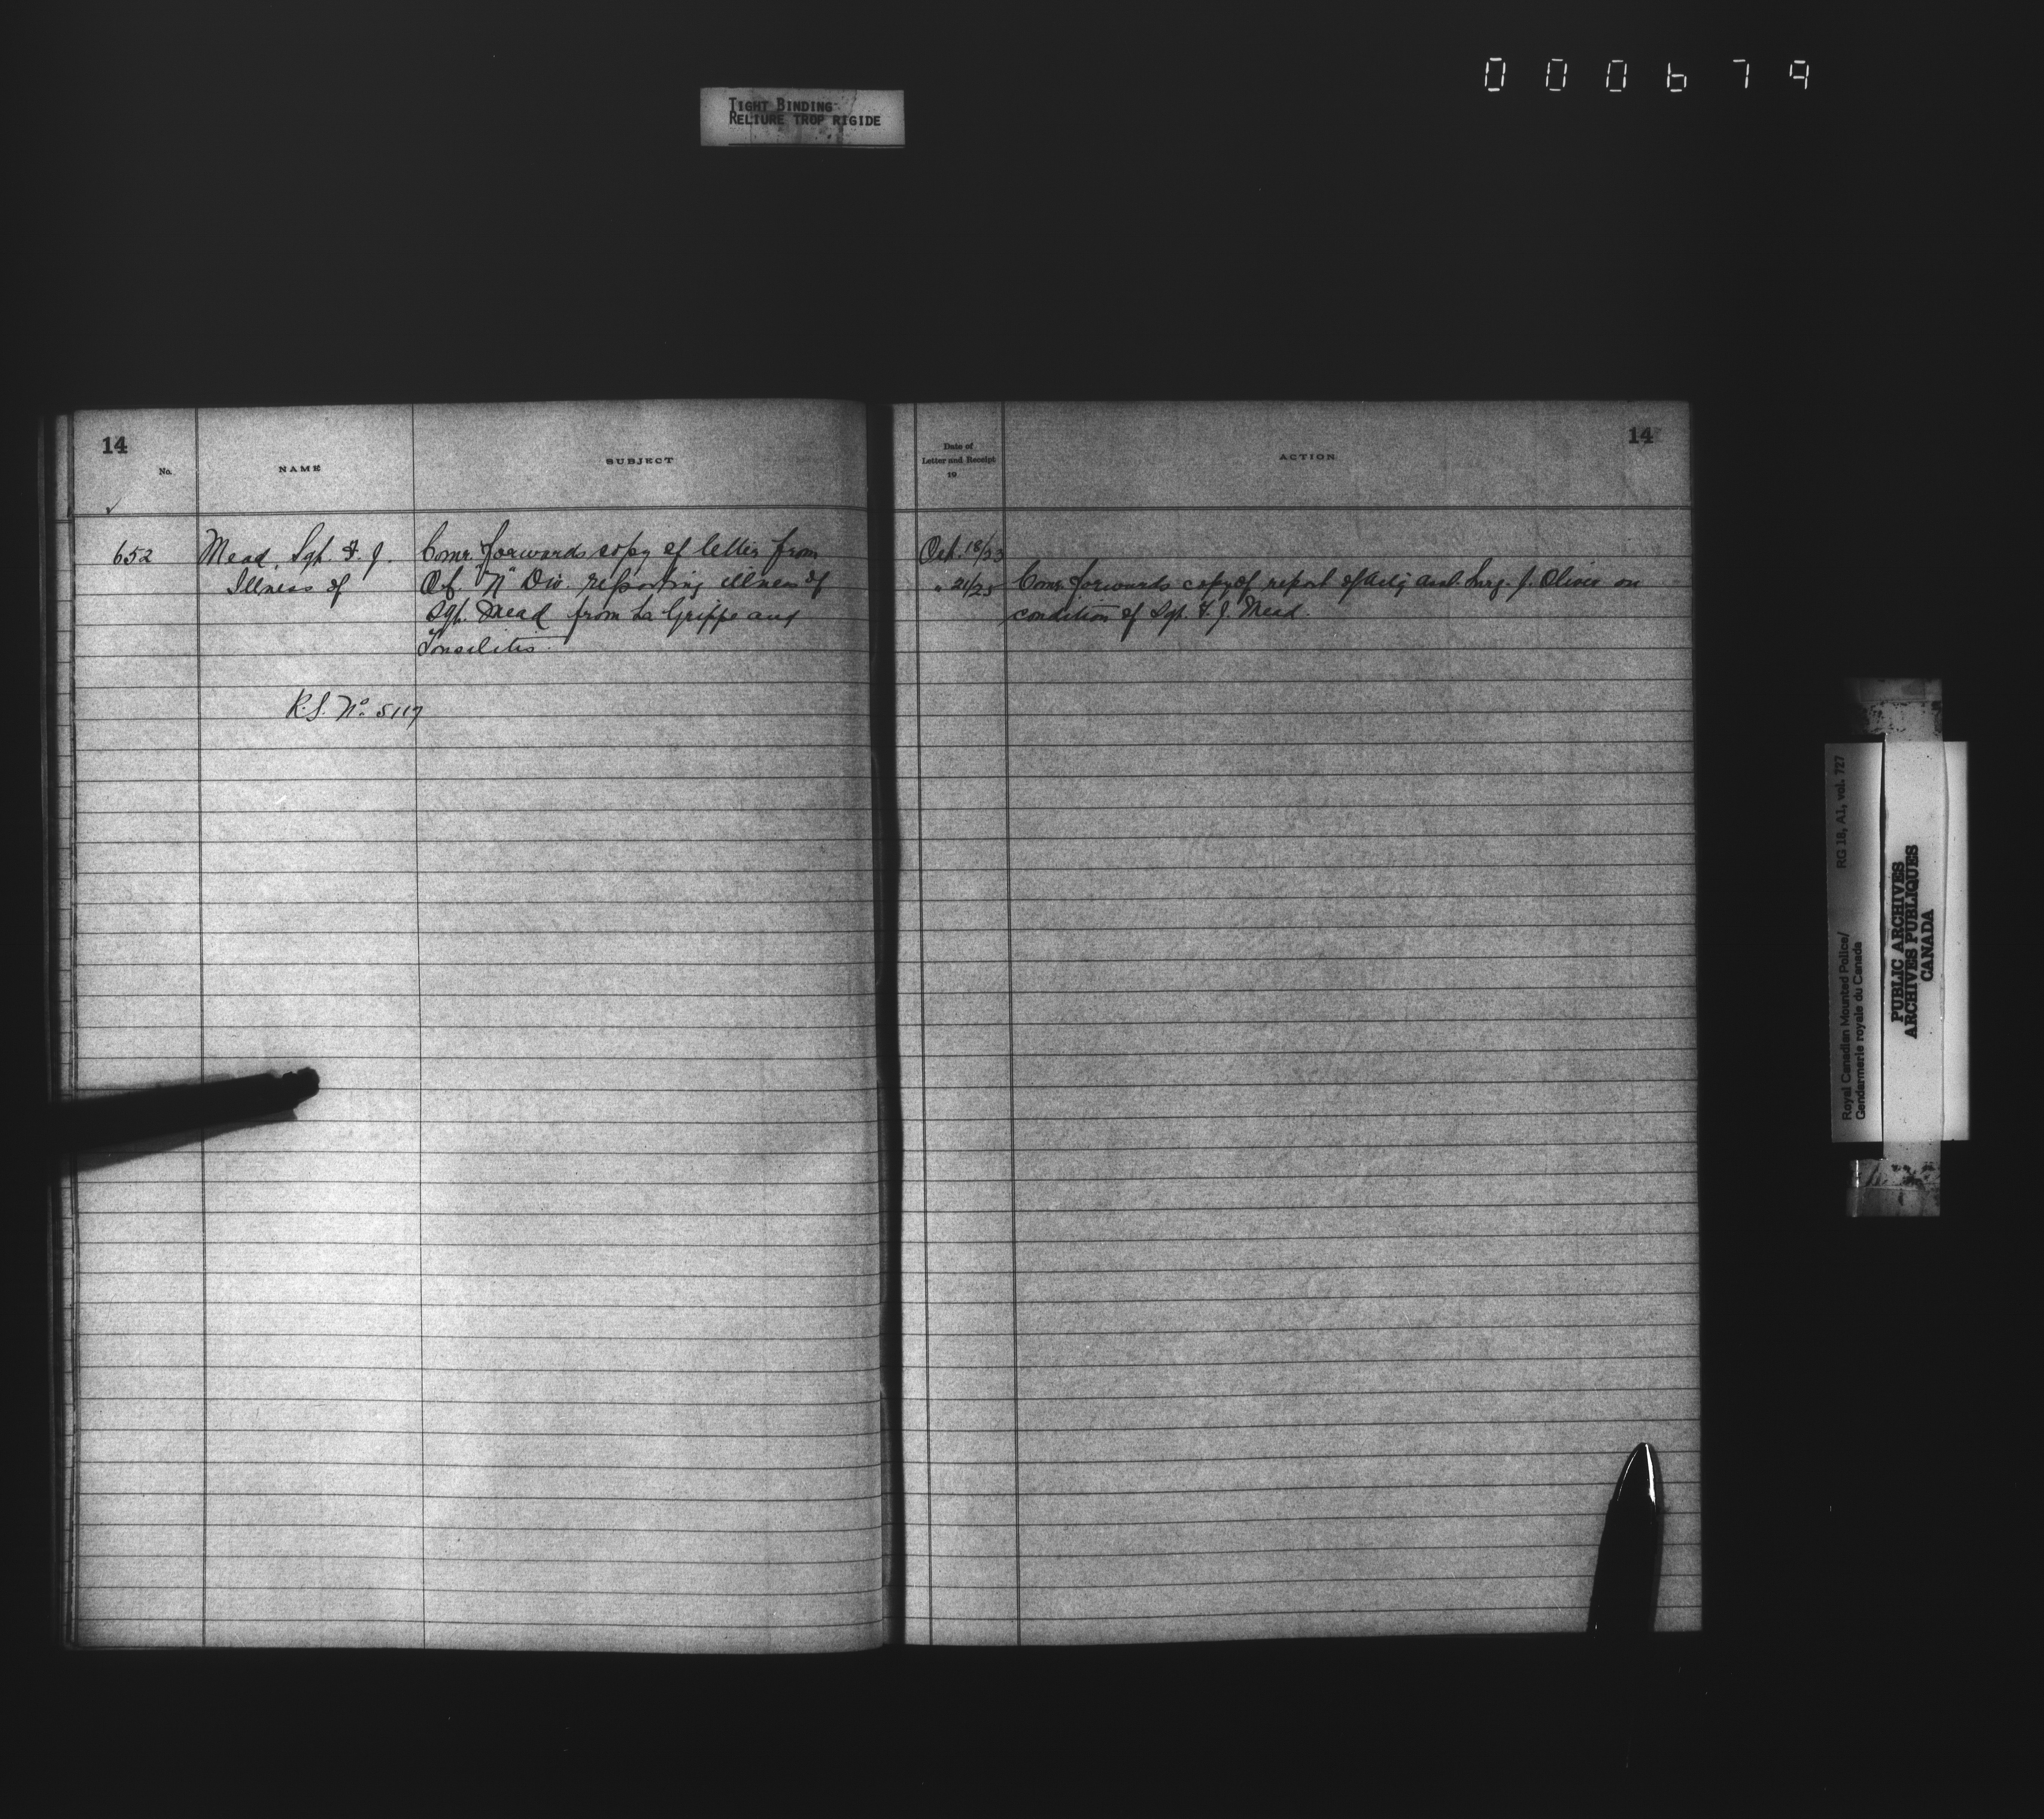 000679
TIGHT BINDING
RELIURE TROP RIGIDE
14
No.
NAME
SUBJECT
Date of
Letter and Receipt
19
ACTION
14
652
Mead, Sgt. F. J.
Illness of
Comr. forwards copy of letter from
O.C. "N" Div. reporting illness of
Sgt. Mead from La Grippe and
Tonsilitis.
R.S. No. 5117
Oct. 18/23
" 21/23
Comr. forwards copy of report of Actg Asst. Surg. J. on
condition of Sgt. F. J. Mead.
Royal Canadian Mounted Police/
Gendarmerie royale du Canada
RG 18, A1, vol. 727
PUBLIC ARCHIVES
ARCHIVES PUBLIQUES
CANADA